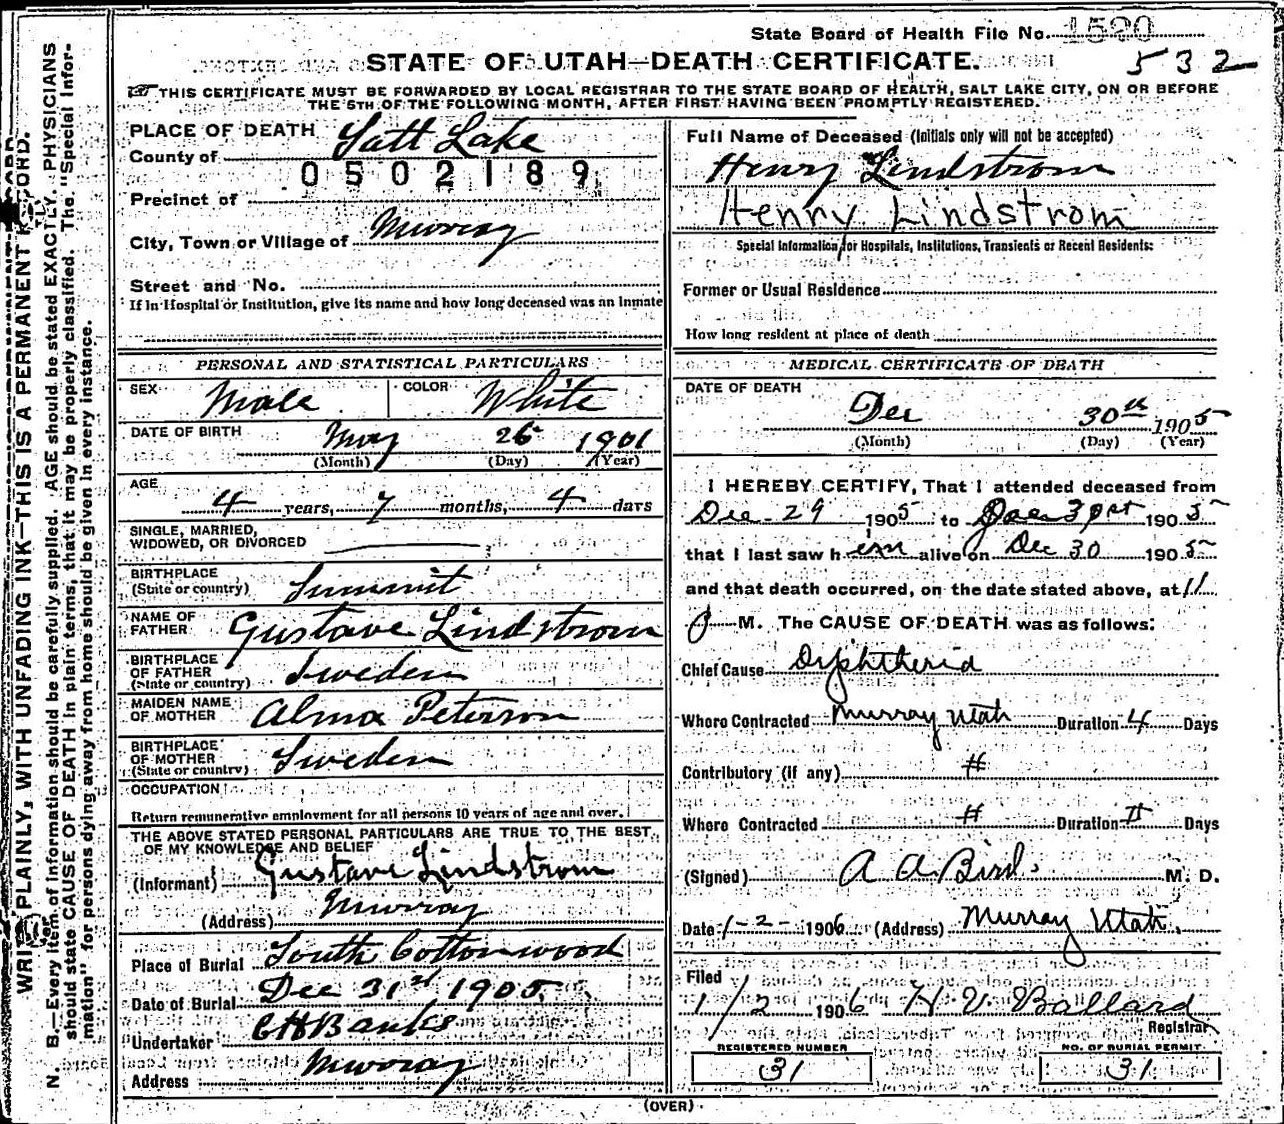 State Board of Health File No. 1520
532
STATE OF UTAH—DEATH CERTIFICATE.
THIS CERTIFICATE MUST BE FORWARDED BY LOCAL REGISTRAR TO THE STATE BOARD OF HEALTH, SALT LAKE CITY, ON OR BEFORE
THE 5TH OF THE FOLLOWING MONTH, AFTER FIRST HAVING BEEN PROMPTLY REGISTERED.
WRITE PLAINLY, WITH UNFADING INK—THIS IS A PERMANENT RECORD.
N. B.—Every item of information should be carefully supplied. AGE should be stated EXACTLY. PHYSICIANS
should state CAUSE OF DEATH in plain terms, that it may be properly classified. The "Special Infor-
mation" for persons dying away from home should be given in every instance.
PLACE OF DEATH
County of Salt Lake
0502189
Precinct of
City, Town or Village of Murray
Street and No.
If in Hospital or Institution, give its name and how long deceased was an inmate
PERSONAL AND STATISTICAL PARTICULARS
SEX Male COLOR White
DATE OF BIRTH May 26 1901
(Month) (Day) (Year)
AGE
4 years, 7 months, 4 days
SINGLE, MARRIED,
WIDOWED, OR DIVORCED
BIRTHPLACE
(State or country) Summit
NAME OF
FATHER Gustave Lindstrom
BIRTHPLACE
OF FATHER
(State or country) Sweden
MAIDEN NAME
OF MOTHER Alma Peterson
BIRTHPLACE
OF MOTHER
(State or country) Sweden
OCCUPATION
Return remunerative employment for all persons 10 years of age and over.
THE ABOVE STATED PERSONAL PARTICULARS ARE TRUE TO THE BEST
OF MY KNOWLEDGE AND BELIEF
(Informant) Gustave Lindstrom
(Address) Murray
Place of Burial South Cottonwood
Date of Burial Dec 31st 1905
Undertaker C H Banks
Address Murray
Full Name of Deceased (Initials only will not be accepted)
Henry Lindstrom
Henry Lindstrom
Special Information for Hospitals, Institutions, Transients or Recent Residents:
Former or Usual Residence
How long resident at place of death
MEDICAL CERTIFICATE OF DEATH
DATE OF DEATH
Dec 30th 1905
(Month) (Day) (Year)
I HEREBY CERTIFY, That I attended deceased from
Dec 29 1905 to 1905
that I last saw him alive on Dec 30 1905
and that death occurred, on the date stated above, at 11
P M. The CAUSE OF DEATH was as follows:
Chief Cause Diphtheria
Where Contracted Murray Utah Duration 4 Days
Contributory (if any) #
Where Contracted # Duration # Days
(Signed) A A Bird. M. D.
Date 1-2-1906 (Address) Murray Utah.
Filed
1/2 1906 H V Ballard
Registrar
REGISTERED NUMBER
31
NO. OF BURIAL PERMIT
31
(OVER)